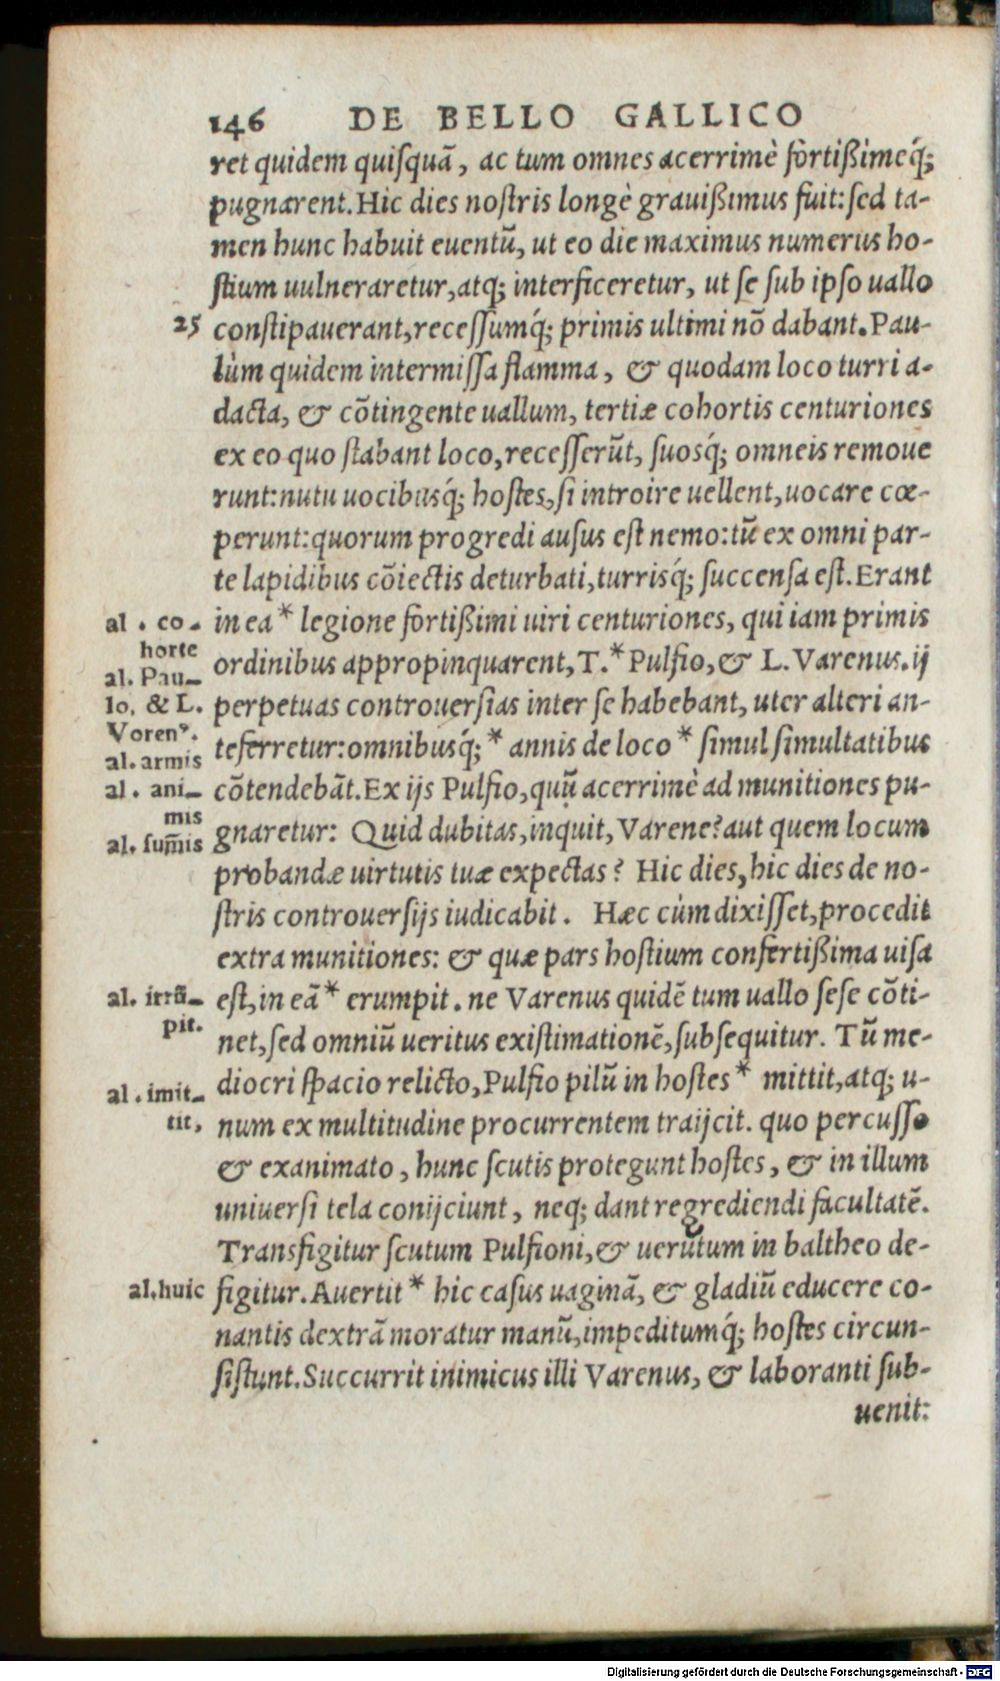 146 DE BELLO GALLICO
ret quidem quiſquã, ac tum omnes acerrimè fortißimeq́;
pugnarent. Hic dies noſtris longè grauißimus fuit: ſed ta-
men hunc habuit euentũ, ut eo die maximus numerus ho-
ſtium uulneraretur, atq; interficeretur, ut ſe ſub ipſo uallo
25 conſtipauerant, receſſumq́; primis ultimi nõ dabant. Pau-
lùm quidem intermiſſa flamma, & quodam loco turri a-
dacta, & cõtingente uallum, tertiæ cohortis centuriones
ex eo quo ſtabant loco, receſſerũt, ſuosq́; omneis remoue
runt: nutu uocibusq́; hoſtes, ſi introire uellent, uocare cœ-
perunt: quorum progredi auſus eſt nemo: tũ ex omni par-
te lapidibus cõiectis deturbati, turrisq́; ſuccenſa eſt. Erant
in ea * legione fortißimi uiri centuriones, qui iam primis
ordinibus appropinquarent, T. * Pulfio, & L. Varenus. ij
perpetuas controuerſias inter ſe habebant, uter alteri an-
teferretur: omnibusq́; * annis de loco * ſimul ſimultatibus
cõtendebãt. Ex ijs Pulfio, quũ acerrimè ad munitiones pu-
gnaretur: Quid dubitas, inquit, Varene? aut quem locum
probandæ uirtutis tuæ expectas? Hic dies, hic dies de no-
ſtris controuerſijs iudicabit. Hæc cùm dixiſſet, procedit
extra munitiones: & quæ pars hoſtium confertißima uiſa
eſt, in eã * erumpit. ne Varenus quidẽ tum uallo ſeſe cõti-
net, ſed omniũ ueritus exiſtimationẽ, ſubſequitur. Tũ me-
diocri ſpacio relicto, Pulfio pilũ in hoſtes * mittit, atq; u-
num ex multitudine procurrentem traijcit. quo percuſſo
& exanimato, hunc ſcutis protegunt hoſtes, & in illum
uniuerſi tela conijciunt, neq; dant regrediendi facultatẽ.
Transfigitur ſcutum Pulfioni, & uerutum in baltheo de-
figitur. Auertit * hic caſus uaginã, & gladiũ educere co-
nantis dextrã moratur manũ, impeditumq́; hoſtes circun-
ſiſtunt. Succurrit inimicus illi Varenus, & laboranti ſub-
uenit:
al. co-
horte
al. Pau-
lo, & L.
Vorenꝰ.
al. armis
al. ani-
mis
al. ſum̃is
al. irrũ-
pit.
al. imit-
tit,
al. huic
Digitalisierung gefördert durch die Deutsche Forschungsgemeinschaft - DFG